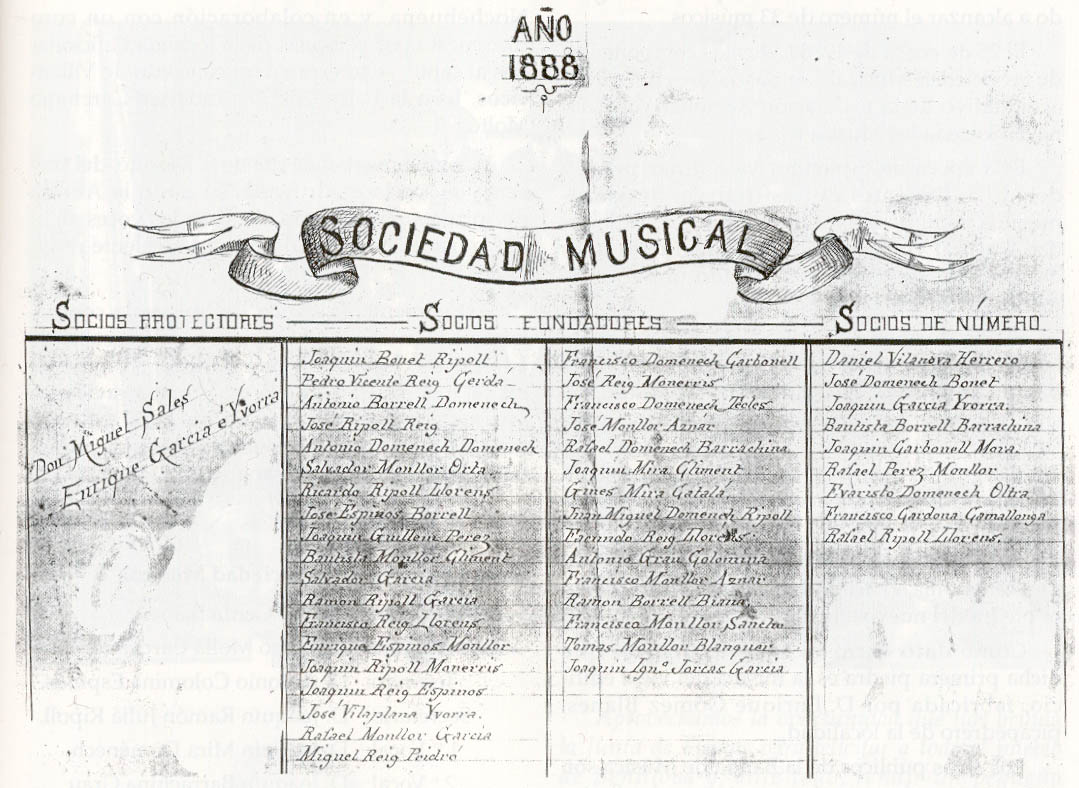 AÑO
1888
SOCIEDAD MUSICAL
SOCIOS PROTECTORES
SOCIOS FUNDADORES
SOCIOS DE NÚMERO
Don Miguel Sales
Enrique Garcia é Yvorra
Joaquin Bonet Ripoll
Pedro Vicente Reig Cerdá
Antonio Borrell Domenech
José Ripoll Reig
Antonio Domenech Domenech
Salvador Monllor Orta
Ricardo Ripoll Llorens
José Espinos Borrell
Joaquin Guillem Perez
Bautista Monllor Climent
Salvador Garcia
Ramon Ripoll Garcia
Francisco Reig Llorens
Enrique Espinos Monllor
Joaquin Ripoll Monerris
Joaquin Reig Espinos
José Vilaplana Yvorra.
Rafael Monllor Garcia
Miguel Reig Peidró
Francisco Domenech Carbonell
José Reig Monerris
Francisco Domenech、Teoles
José Monllor Aznar
Rafael Domenech Barrachina
Joaquin Mira Climent
Gines Mira Catalá
Juan Miguel Domenech Ripoll
Facundo Reig Llorens
Antonio Grau Colomina
Francisco Monllor Aznar
Ramon Borrell Biana
Francisco Monllor Sancho
Tomas Monllor Blanquer
Joaquin Ignº Jorcas Garcia
Daniel Vilanova Herrero
José Domenech Bonet
Joaquin Garcia Yvorra.
Bautista Borrell Barrachina
Joaquin Carbonell Mora.
Rafael Perez Monllor
Evaristo Domenech Oltra
Francisco Cardona Camallonga
Rafael Ripoll Llorens.